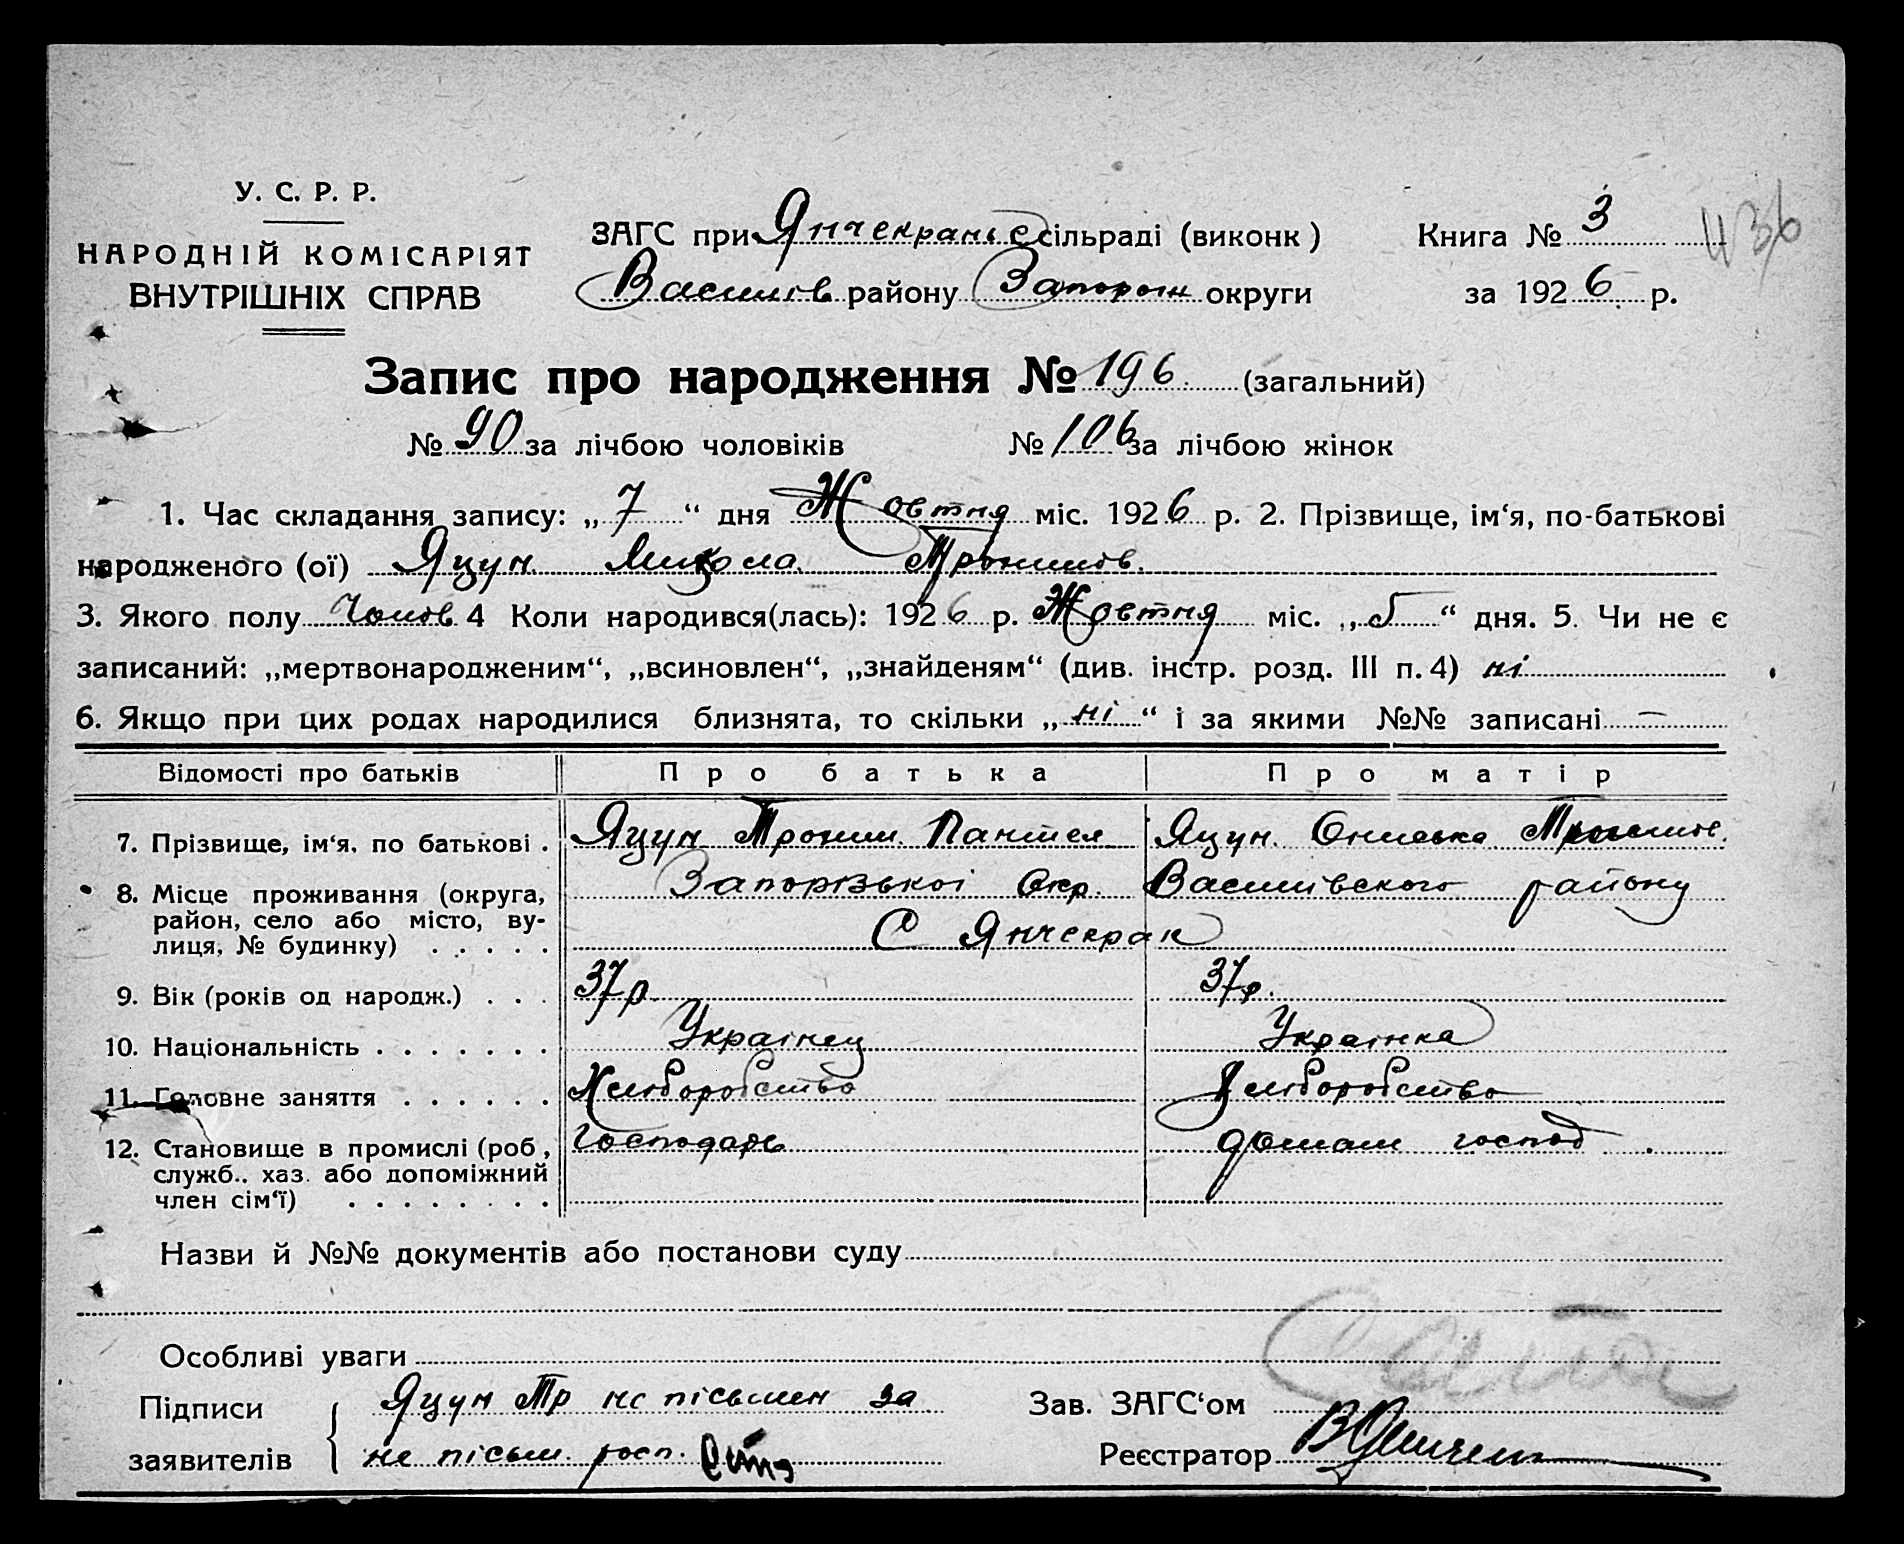 У. С. Р. Р.
НАРОДНІЙ КОМІСАРІЯТ
ВНУТРІШНІХ СПРАВ
ЗАГС при Янчекраньс сільраді (виконк)
Василів району Запорож округи
Книга № 3
за 1926 р.
436
Запис про народження № 196 (загальний)
№ 90 за лічбою чоловіків № 106 за лічбою жінок
1. Час складання запису: „ 7 “ дня Жовтня міс. 1926 р. 2. Прізвище, ім‘я, по-батькові
народженого (ої) Яцун Микола Трохимов.
3. Якого полу Чолов 4 Коли народився(лась): 1926 р. Жовтня міс. „ 5 “ дня. 5. Чи не є
записаний: „мертвонародженим“, „всиновлен“, „знайденям“ (див. інстр. розд. III п. 4) ні
6. Якщо при цих родах народилися близнята, то скільки „ ні “ і за якими №№ записані —
Відомості про батьків Про батька Про матір
7. Прізвище, ім‘я, по батькові . Яцун Трохим Пантел Яцун Ониська
8. Місце проживання (округа, Запорізької Окр. Василівского району
район, село або місто, ву-
лиця, № будинку) . . . . . С Янчекрак
9. Вік (років од народж.) . . . 37 р 37 р.
10. Національність . . . . . . . Українец Українка
11. Головне заняття . . . . . . Хліборобство Хліборобство
12. Становище в промислі (роб, господарь домаш господ.
служб.. хаз. або допоміжний
член сім‘ї) . . . . . . . .
Назви й №№ документів або постанови суду
Особливі уваги
Підписи Яцун Тр не пісьмен за
заявителів не пісьм. росп.
Зав. ЗАГС‘ом
Реєстратор